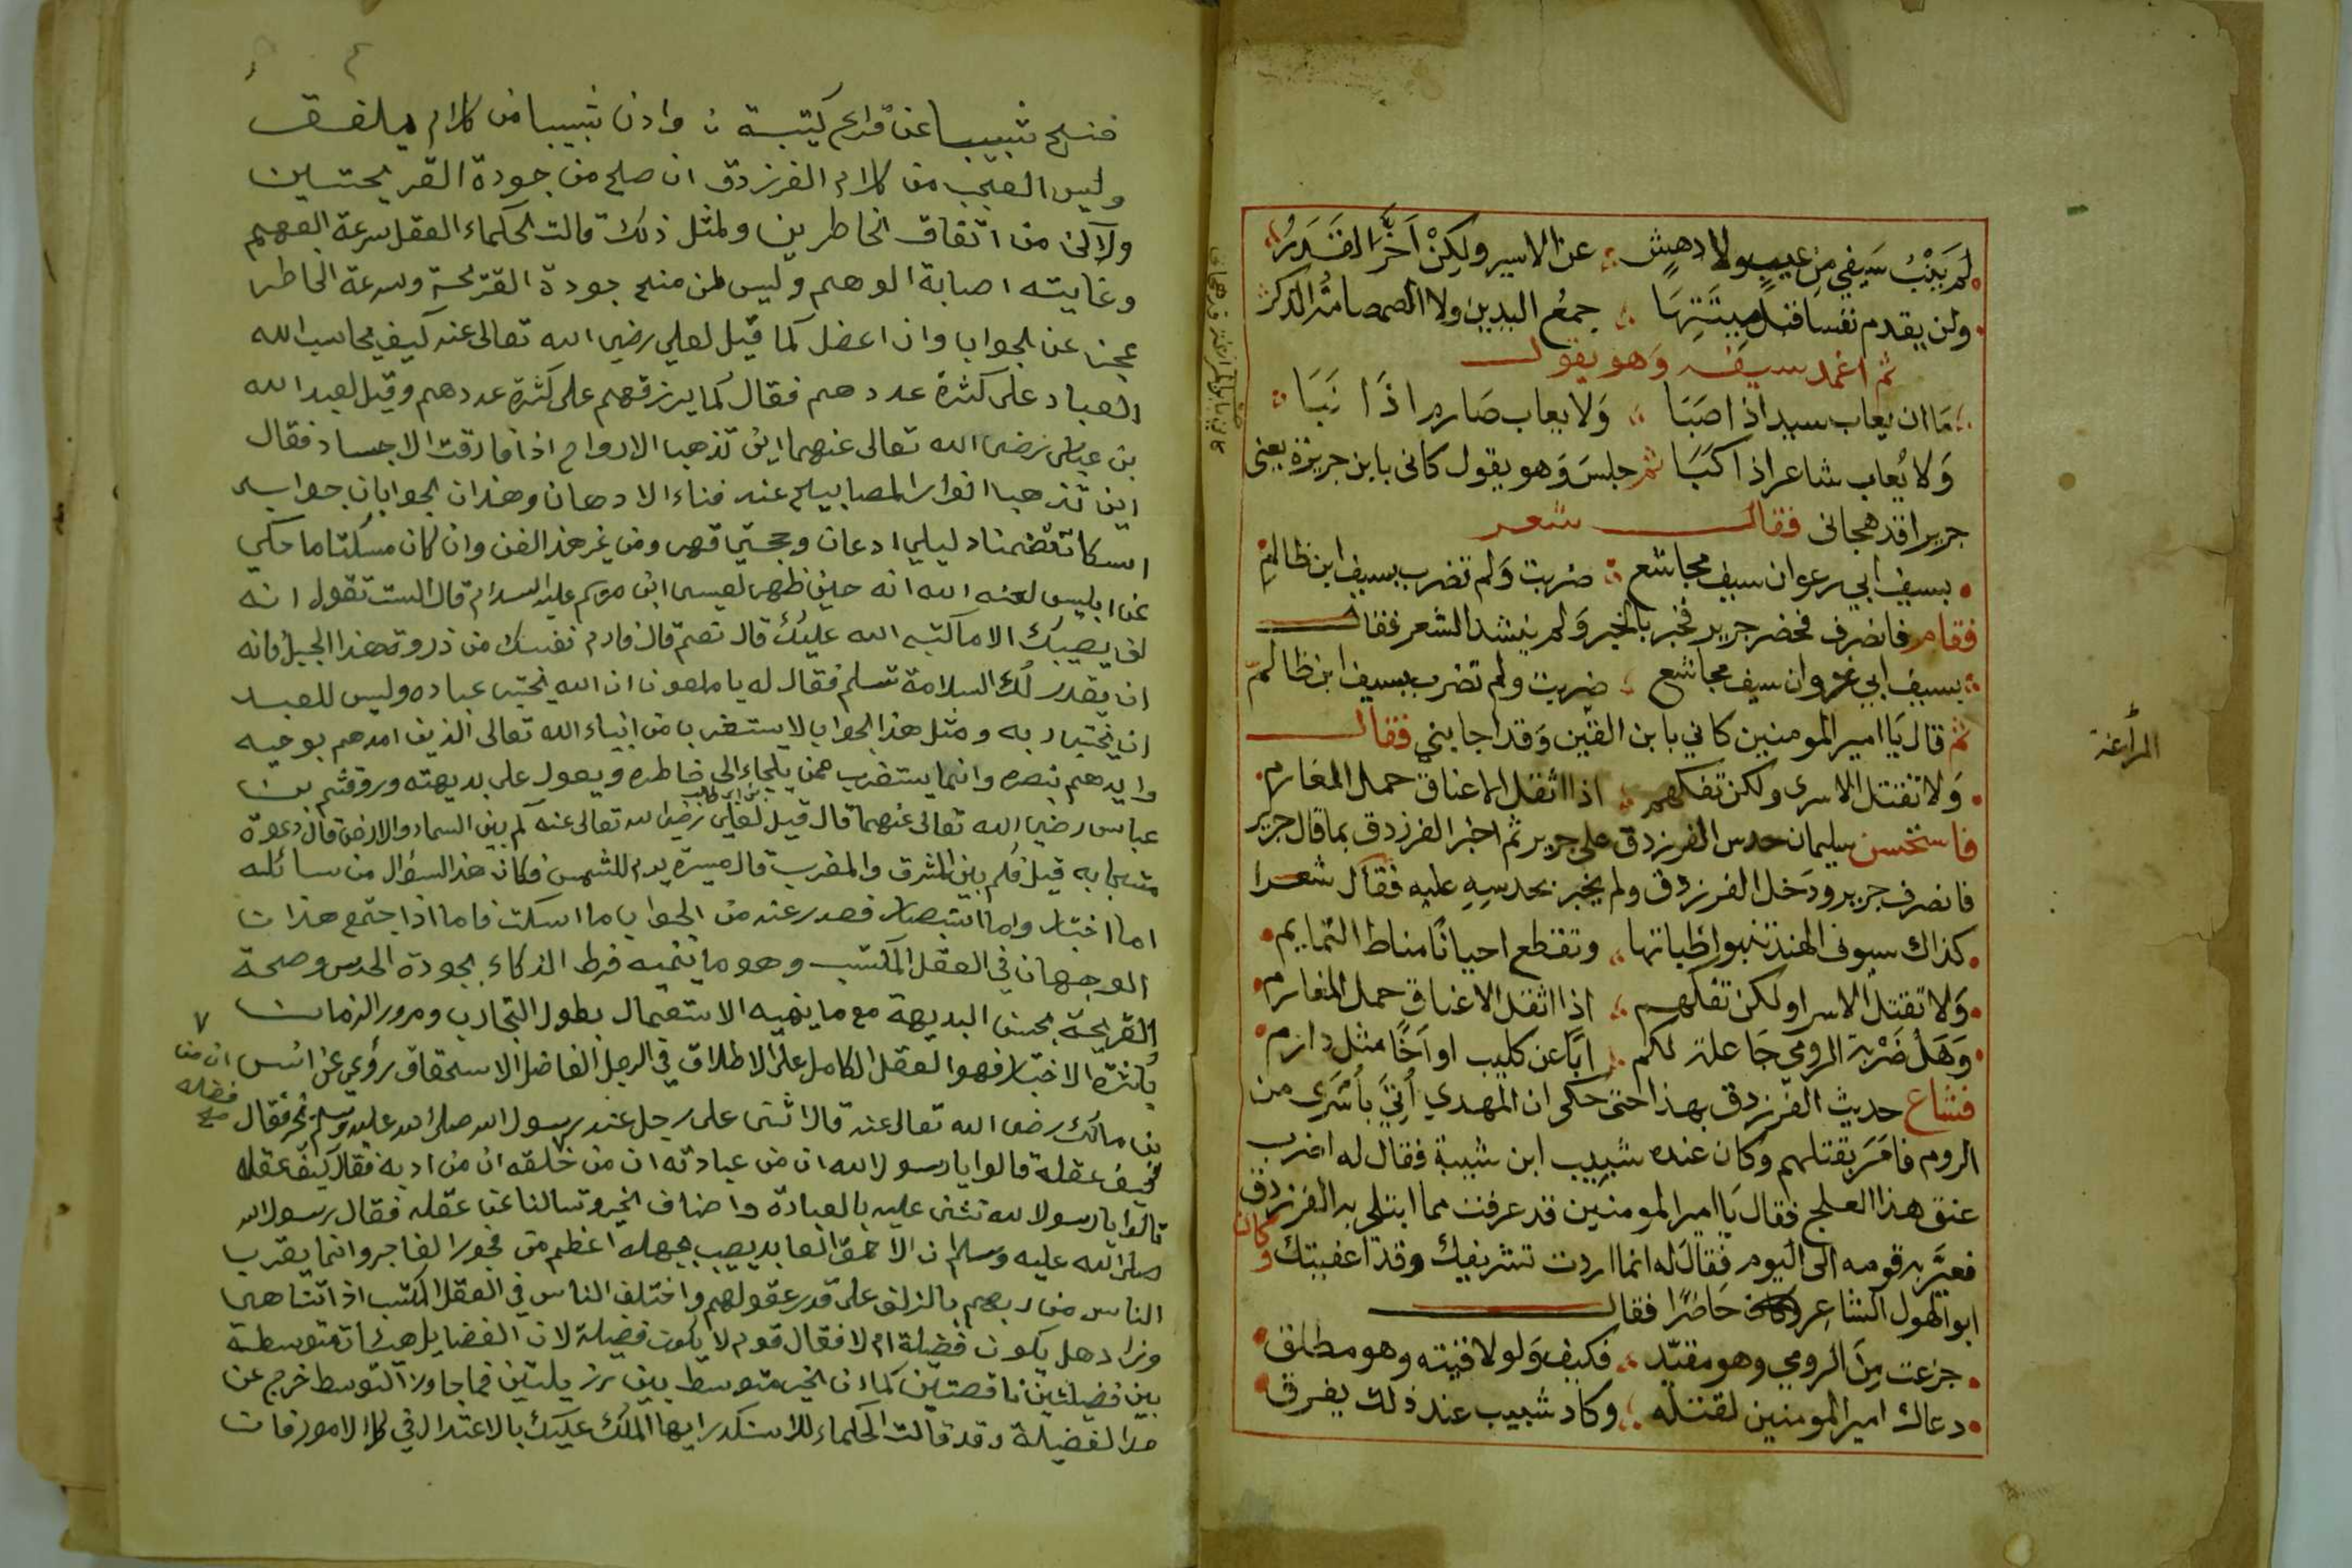 لم ينب سيفي من عيب ولا دهش عن الاسير ولكن أخّر القدر
ولن يقدم نفسا قبل ميتتها جمع اليدين ولا الصمصامة الذكر
ثم اغمد سيفه وهو يقول
ما ان يعاب سيد اذا صبا ولا يعاب صارم اذا نبا
ولا يعاب شاعر اذا كبا ثم جلس وهو يقول كاني بابن جريرة يعني
جريرا قد هجاني فقال شعر
بسيف ابي رعوان سيف مجاشع ضربت ولم تضرب بسيف ابن ظالم
فقام فانصرف فحضر جرير فخبر بالخبر ولم ينشد الشعر فقال
بسيف ابي غروان سيف مجاشع ضربت ولم تضرب بسيف ابن ظالم
ثم قال يا امير المومنين كاني بابن القين وقد اجابني فقال
ولا تقتل الاسرى ولكن تفكهم اذا اثقل الاعناق حمل المغارم
فاستحسن سليمان حدس الفرزدق على جرير ثم اخبر الفرزدق بما قال جرير
فانصرف جرير ودخل الفرزدق ولم يخبر بحدسه عليه فقال شعرا
كذاك سيوف الهند تنبوا ظباتها وتقطع احيانا مناط التمايم
ولا تقتل الاسرا ولكن تفكهم اذا اثقل الاعناق حمل المغارم
وهل ضربة الرومي جاعلة لكم ابا عن كليب او اخا مثل دارم
فشاع حديث الفرزدق بهذا حتى حكى ان المهدي أتي بأسرى من
الروم فامر بقتلهم وكان عنده شبيب ابن شيبة فقال له اضرب
عنق هذا العلج فقال يا امير المومنين قد عرفت مما ابتلى به الفرزدق
فعير به قومه الى اليوم فقال له انما اردت تشريفك وقد اعفيتك وكان
ابو الهول الشاعر حاضرا فقال
جزعت من الرومي وهو مقيد فكيف ولو لاقيته وهو مطلق
دعاك امير المومنين لقتله وكاد شبيب عند ذلك يفرق
المراغة
فنح شبيبا عن قراع كتيبة وادن شبيبا من كلام يلفق
وليس العجب من كلام الفرزدق ان صلح من جودة القريحتين
ولكن من اتفاق الخاطرين ولمثل ذلك قالت الحكماء العقل سرعة الفهم
وغايته اصابة الوهم وليس لمن منح جودة القريحة وسرعة الخاطر
عجز عن الجواب وان اعضل كما قيل لعلي رضي الله تعالى عنه كيف يحاسب الله
العباد على كثرة عددهم فقال كما يرزقهم على كثرة عددهم وقيل لعبد الله
بن عباس رضي الله تعالى عنهما اين تذهب الارواح اذا فارقت الاجساد فقال
اين تذهب انوار المصابيح عند فناء الادهان وهذان الجوابان جوابا
اسكات تضمنا دليلي ادعان وحجتي قهر ومن غير هذا الفن وان كان مسكتا ما حكي
عن ابليس لعنه الله انه حين ظهر لعيسى ابن مريم عليه السلام قال الست تقول انه
لن يصيبك الا ما كتبه الله عليك قال نعم قال فارم نفسك من ذروة هذا الجبل فانه
ان يقدر لك السلامة تسلم فقال له يا ملعون ان الله يختبر عباده وليس للعبد
ان يختبر ربه ومثل هذا الجواب لا يستغرب من انبياء الله تعالى الذين امدهم بوحيه
وايدهم بنصره وانما يستغرب ممن يلجاء الى خاطره ويعول على بديهته وروي قثم بن
عباس رضي الله تعالى عنهما قال قيل لعلي بن ابي طالب رضي الله تعالى عنه كم بين السماء والارض قال دعوة
مستجابه قيل فكم بين المشرق والمغرب قال مسيرة يوم للشمس فكان هذا السؤال من سائله
اما اختبار واما استبصار فصدر عنه من الجواب ما اسكت فاما اذا اجتمع هذان
الوجهان في العقل المكتسب وهو ما ينميه فرط الذكاء بجودة الحدس وصحة
القريحة بحسن البديهة مع ما ينميه الاستعمال بطول التجارب ومرور الزمان
بكثرة الاختبار فهو العقل الكامل على الاطلاق في الرجل الفاضل الاستحقاق روي عن انس
بن مالك رضي الله تعالى عنه قال اثنى على رجل عند رسول الله صلى الله عليه وسلم بخير فقال
كيف عقله قالوا يا رسول الله ان من عبادته ان من خلقه ان من ادبه فقال كيف عقله
ان من فضله صح
قالوا يا رسول الله نثني عليه بالعبادة واصناف الخير وتسالنا عن عقله فقال رسول الله
صلى الله عليه وسلم ان الاحمق العابد يصيب بجهله اعظم من فجور الفاجر وانما يقرب
الناس من ربهم بالزلف على قدر عقولهم واختلف الناس في العقل المكتسب اذا تناهى
وزاد هل يكون فضيلة ام لا فقال قوم لا يكون فضيلة لان الفضايل هيئات متوسطة
بين فضيلتين ناقصتين كما ان الخير متوسط بين رزيلتين فما جاوز التوسط خرج عن
حد الفضيلة وقد قالت الحكماء للاسكندر ايها الملك عليك بالاعتدال في كل الامور فان